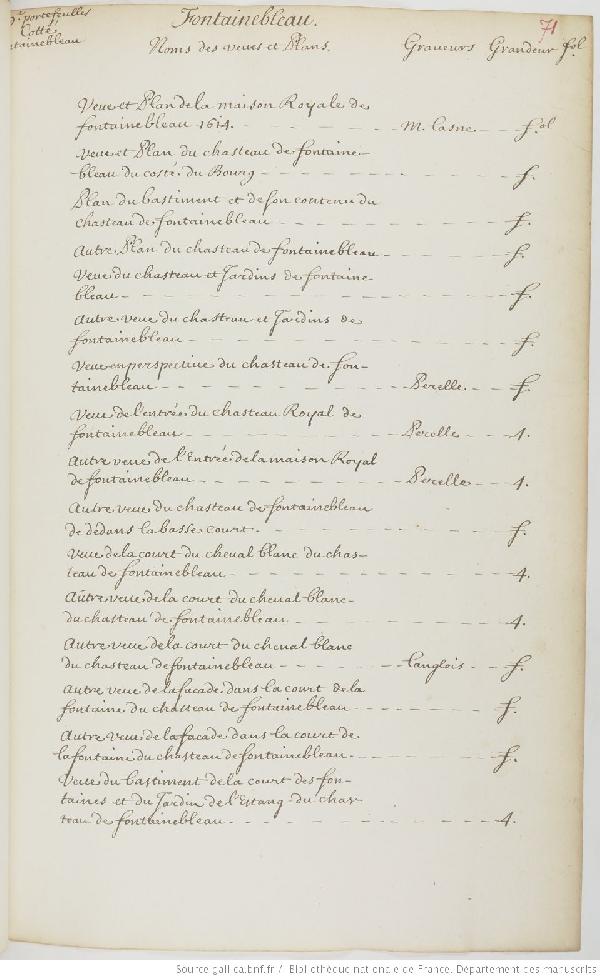 Dr. portefeuilles
Cotté
ntainebleau
Fontainebleau.
71
Noms des veues et Plans. Graveurs Grandeur fol
Veue et Plan de la maison Royale de
fontainebleau 1614. M. Lasne. fol
Veue et Plan du chasteau de fontaine-
bleau du costé du Bourg f.
Plan du bastiment et de son contenu du
chasteau de fontainebleau f.
Autre Plan du chasteau de fontainebleau f.
Veue du chasteau et Jardins de fontaine-
bleau f.
Autre veue du chasteau et Jardins de
fontainebleau f.
Veue en perspective du chasteau de fon-
tainebleau Perelle. f.
Veue de l'entrée du chasteau Royal de
fontainebleau Perelle 4.
Autre veue de l'Entrée de la maison Royal
de fontainebleau Perelle 4.
Autre veue du chasteau de fontainebleau
de dedans la basse court. f.
Veue de la court du cheval blanc du chas-
teau de fontainebleau 4.
Autre veue de la court du cheval blanc
du chasteau de fontainebleau 4.
Autre veue de la court du cheval blanc
du chasteau de fontainebleau Langlois f.
Autre veue de la facade dans la court de la
fontaine du chasteau de fontainebleau f.
Autre veue de la facade dans la court de
la fontaine du chasteau de fontainebleau f.
Veue du bastiment de la court des fon-
taines et du Jardin de l'Estang du chas-
teau de fontainebleau 4.
Source gallica.bnf.fr / Bibliothèque nationale de France. Département des manuscrits